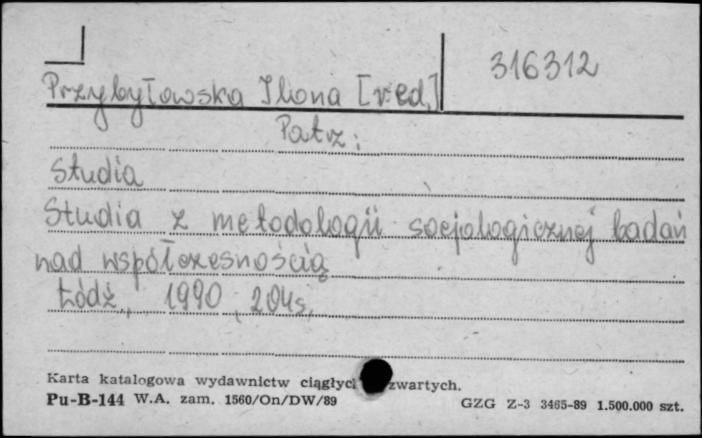 316312
Przybyłowska Ilona [red.]
Patrz:
Studia
Studia z metodologii socjologicznej badań
nad współczesnością
Łódź, 1990, 204s.
Karta katalogowa wydawnictw ciągłyc zwartych.
Pu-B-144 W.A. zam. 1560/On/DW/89 GZG Z-3 3465-89 1.500.000 szt.